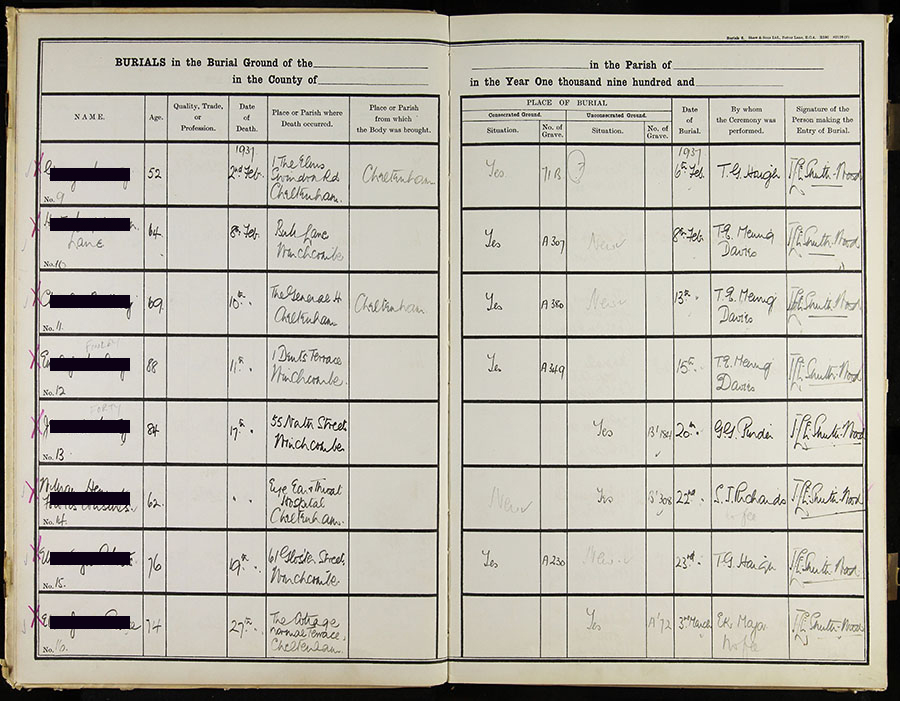 Burials 8. Shaw & Sons Ltd., Fetter Lane, E.C.4.
BURIALS in the Burial Ground of the
in the County of
in the Parish of
in the Year One thousand nine hundred and
NAME.
Age.
Quality, Trade,
or
Profession.
Date
of
Death.
Place or Parish where
Death occurred.
Place or Parish
from which
the Body was brought.
PLACE OF BURIAL
Consecrated Ground.
Unconsecrated Ground.
Situation.
No. of
Grave.
Situation.
No. of
Grave.
Date
of
Burial.
By whom
the Ceremony was
performed.
Signature of the
Person making the
Entry of Burial.
No. 9
52
1937
2nd Feb.
1 The Elms
Rd
Cheltenham.
Cheltenham
Yes
71 B
?
1937
6th Feb.
T. G. Haigh
Smith-Wood
Lane
No. 10
64
8th Feb.
Bull Lane
Winchcombe
Yes
A 307
New
8th Feb.
T. E. Meurig
Davies
Smith-Wood
No. 11.
69
10th "
The General H
Cheltenham
Cheltenham
Yes
A 380
New
13th "
T. E. Meurig
Davies
Smith-Wood
No. 12
88
11th "
1 Dents Terrace
Winchcombe.
Yes
A 349
15th "
T. E. Meurig
Davies
Smith-Wood
FORTY
No. 13.
84
17th "
55 North Street
Winchcombe
Yes
B' 184
20th "
G. G. Purdie
Smith-Wood
No. 14.
62
" "
Eye Ear & Throat
Hospital
Cheltenham.
New
Yes
B' 308
22nd "
S. J. Richards
no fee
Smith-Wood
No. 15.
76
19th "
61 Gloster Street
Winchcombe
Yes
A 230
New
23rd "
T. G. Haigh
Smith-Wood
No. 16.
74
27th "
The Cottage
Normal Terrace,
Cheltenham.
Yes
A' 72
3rd March
Major
No fee
Smith-Wood